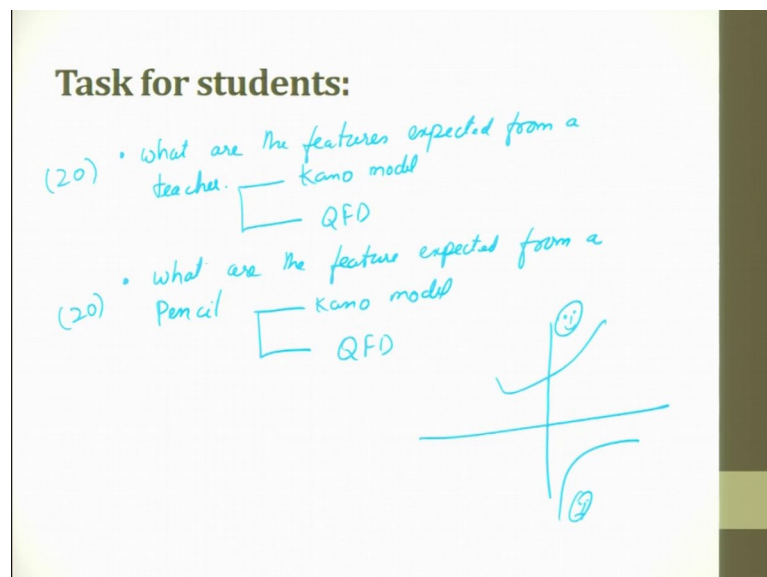 Task for students:
(20) • what are the features expected from a
teacher. Kano model
QFD
(20) • what are the feature expected from a
Pencil Kano model
QFD